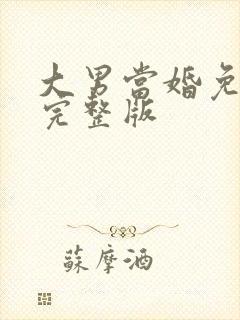 大男當婚免
完整版
蘇摩酒